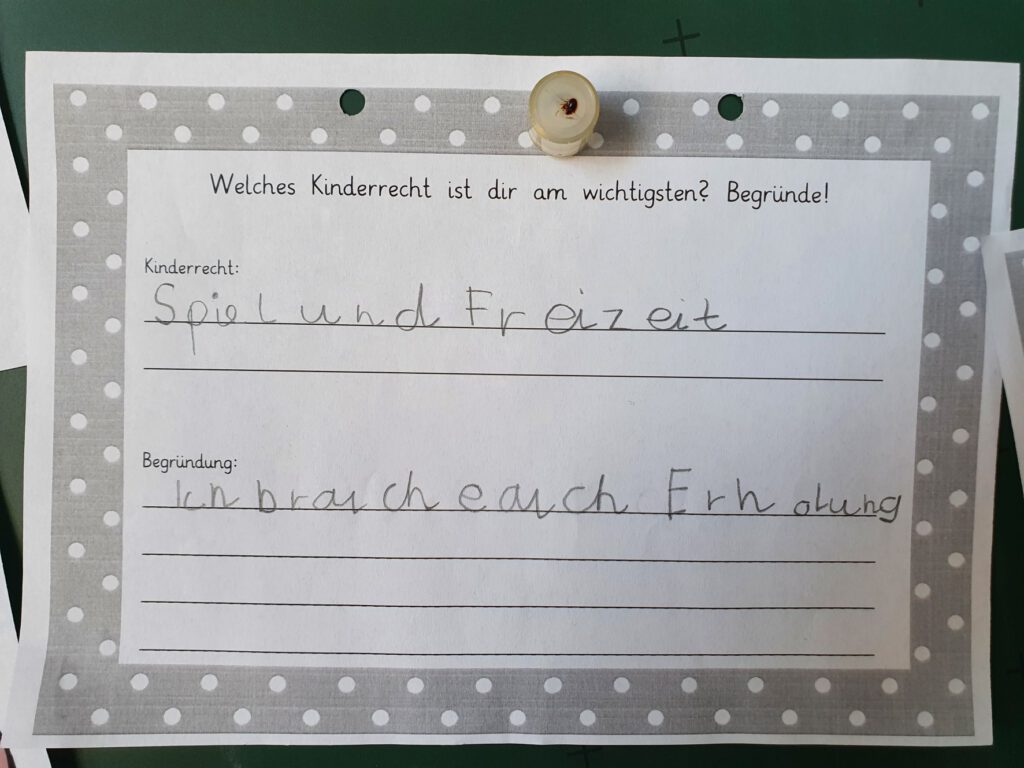 Welches Kinderrecht ist dir am wichtigsten? Begründe!
Kinderrecht:
Spiel und Freizeit
Begründung:
Ich brauche auch Erholung